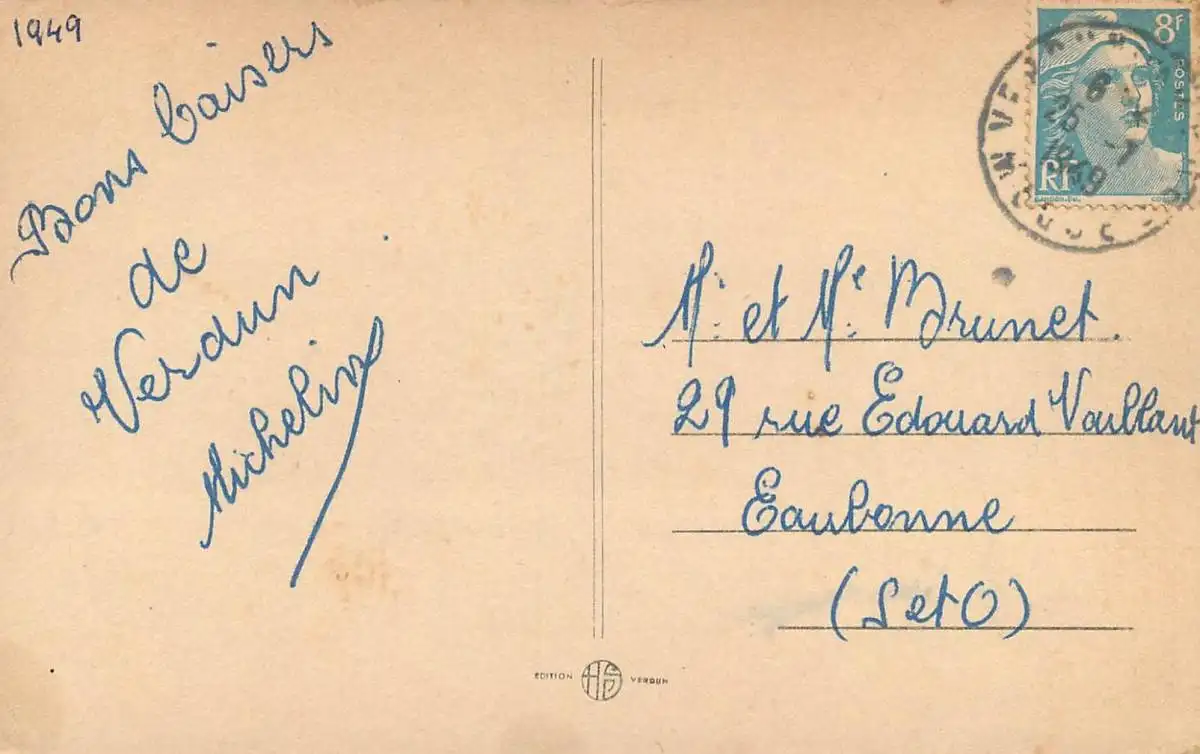 1949
Bons baisers
de
Verdun
Micheline
8F
POSTES
RF
VERDUN
25 -7
1949
Mr et Me Brunet.
29 rue Edouard Vaillant
Eaubonne
(S et O)
EDITION HGD VERDUN